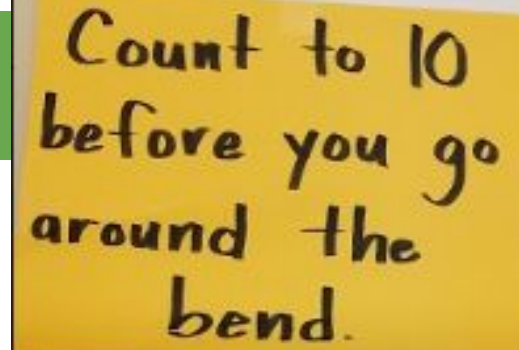 Count to 10
before you go
around the
bend.